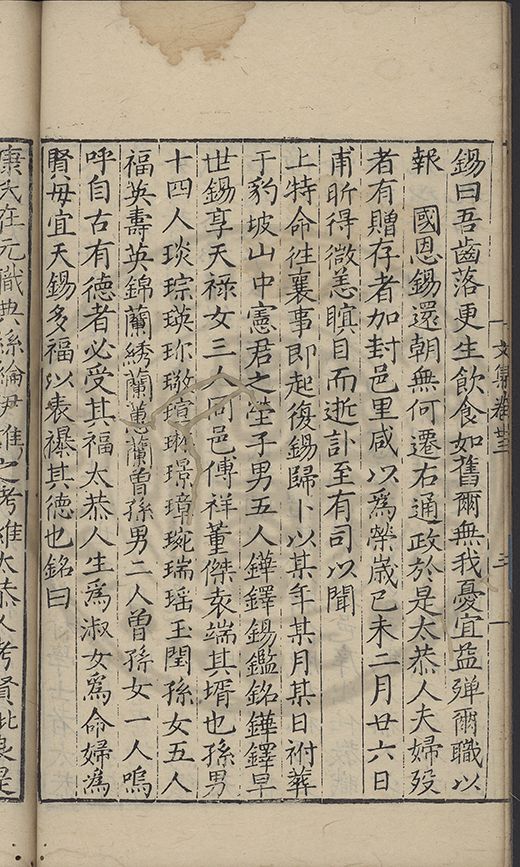 文集卷廿三
三
錫曰吾齒落更生飲食如舊爾無我憂宜益殫爾職以
報　國恩錫還朝無何遷右通政於是太恭人夫婦歿
者有贈存者加封邑里咸以為榮歲己未二月廿六日
甫昕得微恙瞑目而逝訃至有司以聞
上特命往襄事即起復錫歸卜以某年某月某日祔葬
于豹坡山中憲君之塋子男五人鏵鐸錫鑑銘鏵鐸早
世錫享天祿女三人同邑傅祥董傑袁端其壻也孫男
十四人琰琮瑛珎璥瑄琳璟璋琬瑞瑶玉閏孫女五人
福英壽英錦蘭綉蘭蕙蘭曾孫男二人曾孫女一人嗚
呼自古有德者必受其福太恭人生為淑女為命婦為
賢母宜天錫多福以表襮其德也銘曰
康氏在元職典絲綸尹維之考維太恭人考賢